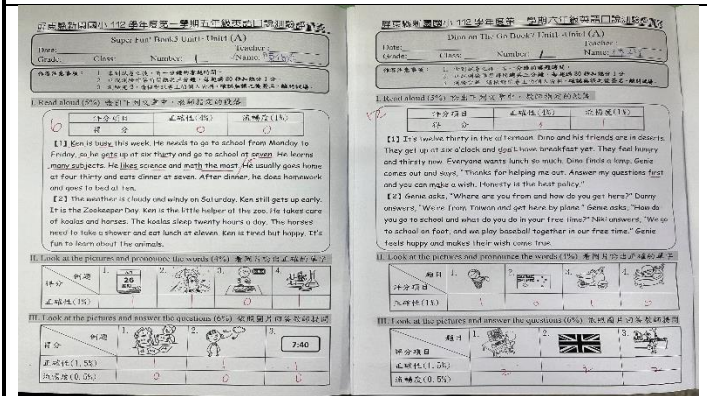 屏東縣新園國小 112 學年度第一學期五年級英語口說測驗
Super Fun! Book5 Unit1- Unit4 (A)
Date:
Teacher:
Grade: Class: Name:
I. Read aloud (5%)
評分項目 正確性(4%) 流暢度(1%)
得 分 0 0
6
【1】Ken is busy this week. He needs to go to school from Monday to
Friday, so he gets up at six thirty and go to school at seven. He learns
many subjects. He likes science and math the most. He usually goes home
at four thirty and eats dinner at seven. After dinner, he does homework
and goes to bed at ten.
【2】The weather is cloudy and windy on Saturday. Ken still gets up early.
It is the Zookeeper Day. Ken is the little helper of the zoo. He takes care
of koalas and horses. The koalas sleep twenty hours a day. The horses
need to take a shower and eat lunch at eleven. Ken is tired but happy. It's
fun to learn about the animals.
II. Look at the pictures and pronounce the words (4%) 看圖片唸出正確的單字
評分 例題 1. 2. 3. 4.
正確性(1%)
III. Look at the pictures and answer the questions (6%)
得分 例題 1. 2. 3.
7:40
正確性(1.5%)
流暢度(0.5%) 0 0 0
屏東縣新園國小 112 學年度第一學期六年級英語口說測驗
Dino on the Go Book7
Date:
Teacher:
Grade: Class: Name:
I. Read aloud (5%)
評分項目 正確性(4%) 流暢度(1%)
得 分
12
【1】It's twelve thirty in the afternoon. Dino and his friends are in deserts.
They get up at six o'clock and don't have breakfast yet. They feel hungry
and thirsty now. Everyone wants lunch so much. Dino finds a lamp. Genie
comes out and says, "Thanks for helping me out. Answer my questions first
and you can make a wish. Honesty is the best policy."
【2】Genie asks, "Where are you from and how do you get here?" Darny
answers, "We're from Taiwan and get here by plane." Genie asks, "How do
you go to school and what do you do in your free time?" Niki answers, "We go
to school on foot, and we play baseball together in our free time." Genie
feels happy and makes their wish come true.
II. Look at the pictures and pronounce the words (4%) 看圖片唸出正確的單字
評分項目 題目 1. 2. 3. 4.
正確性(1%)
III. Look at the pictures and answer the questions (6%)
評分項目 題目 1. 2. 3.
正確性(1.5%)
流暢度(0.5%)